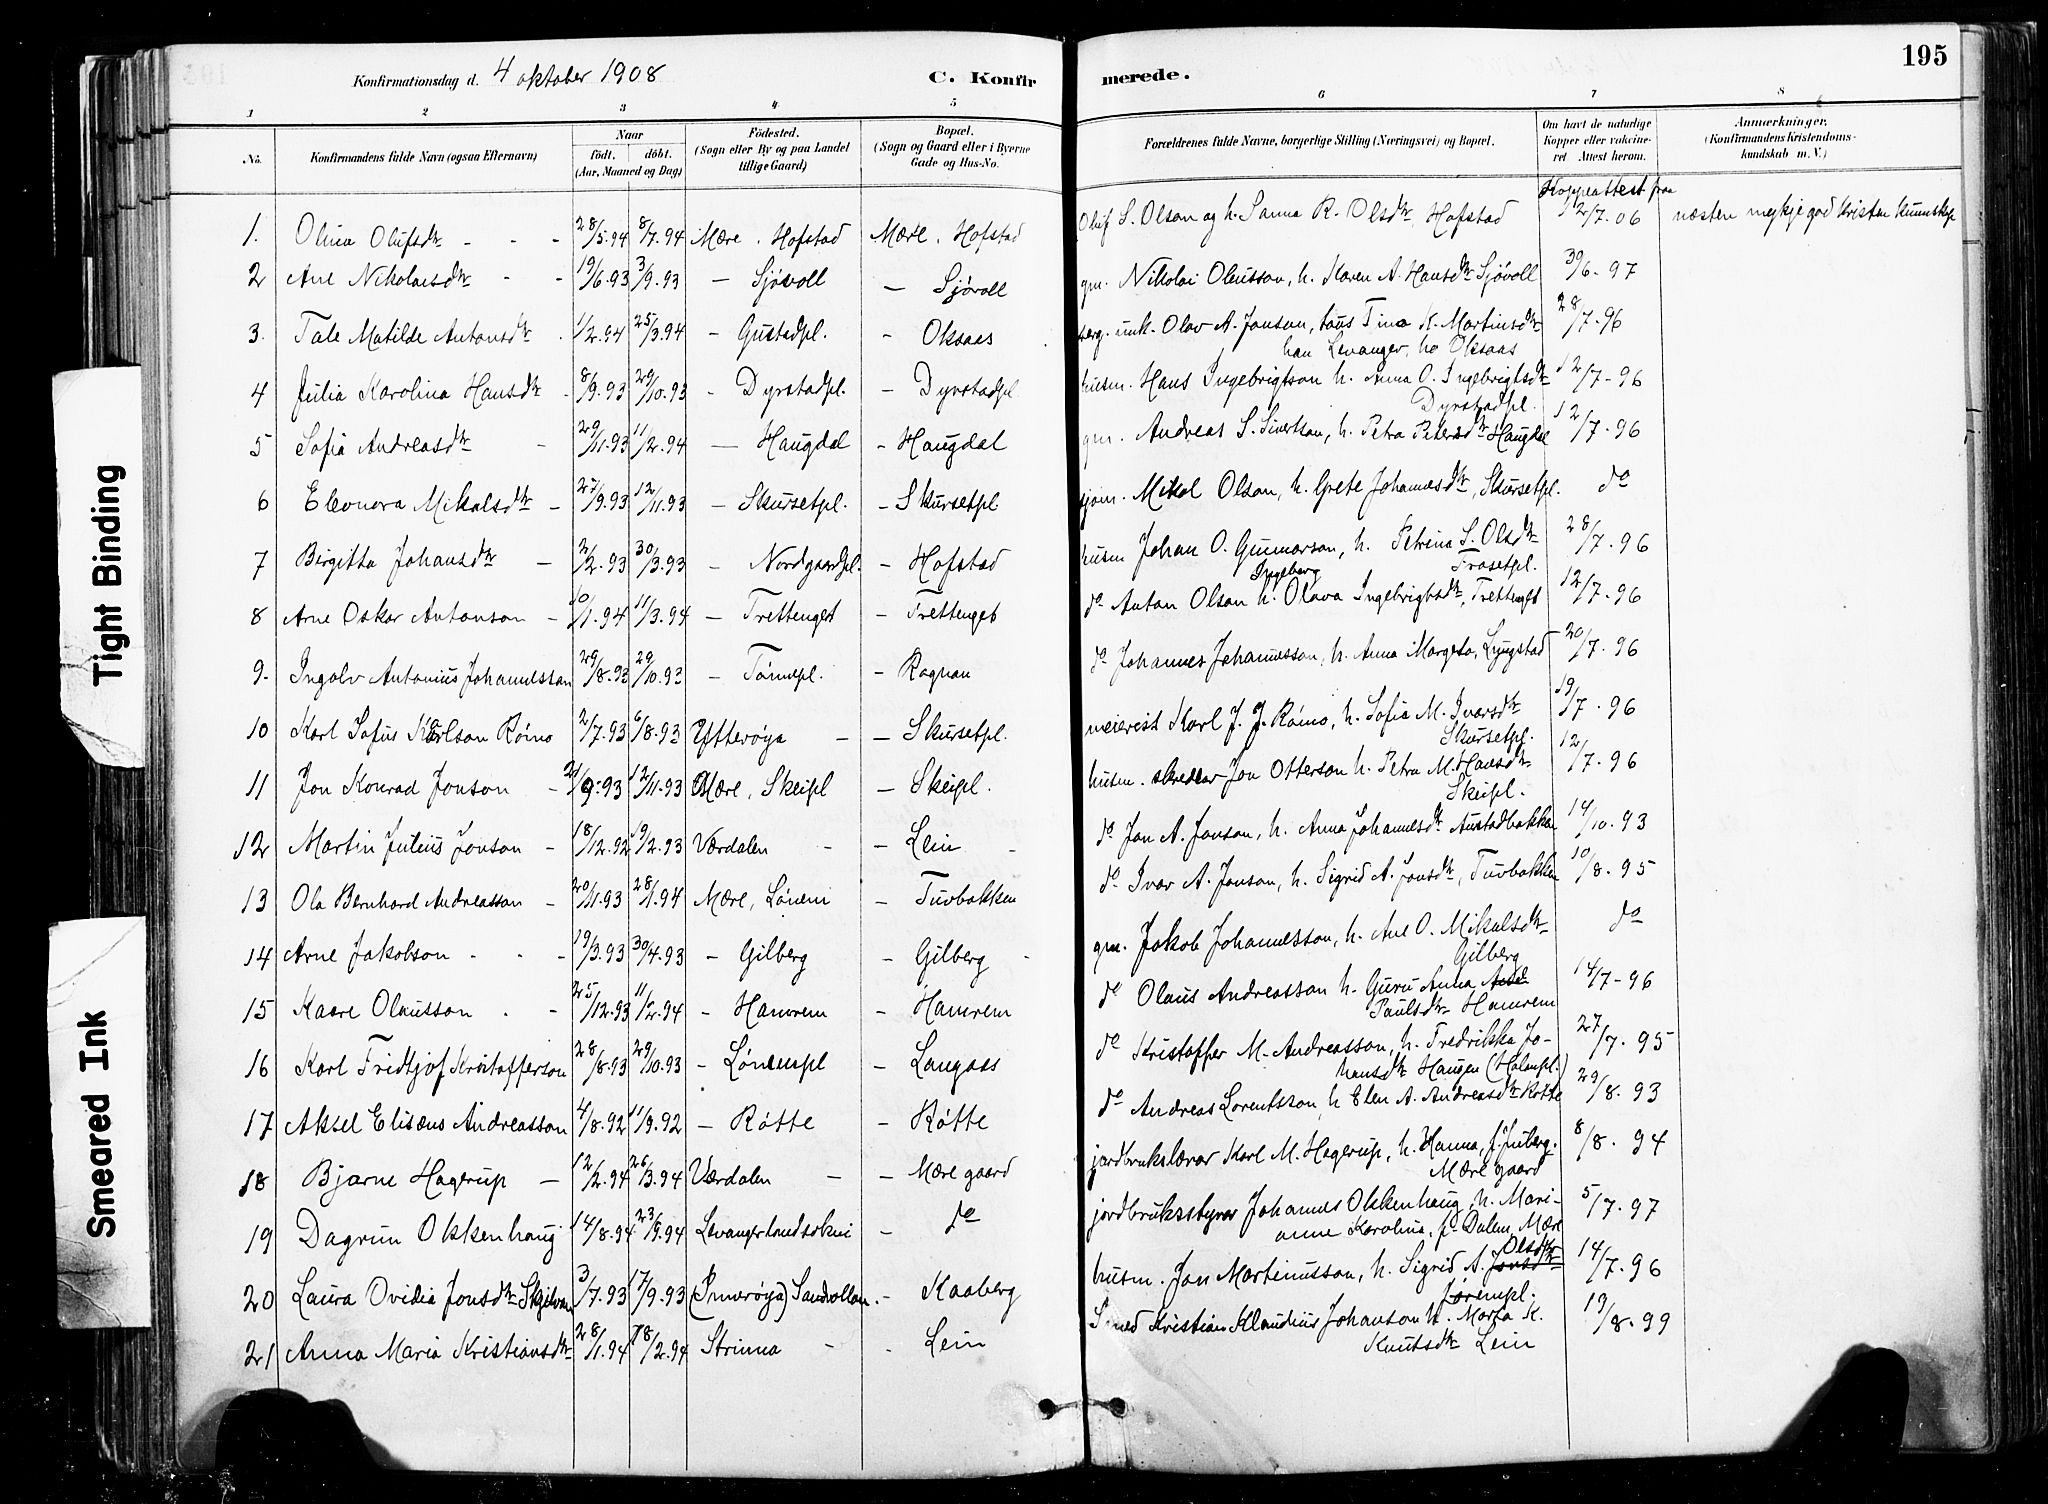 195
Konfirmationsdag d. 4 oktober 1908
C. Konfirmerede.
1 2 3 4 5 6 7 8
No. Konfirmandens fulde Navn (ogsaa Efternavn) Naar født. døbt. (Aar, Maaned og Dag) Fødested. (Sogn eller By og paa Landet tillige Gaard) Bopæl. (Sogn og Gaard eller i Byerne Gade og Hus-No. Forældrenes fulde Navne, borgerlige Stilling (Næringsvei) og Bopæl. Om havt de naturlige Kopper eller vakcineret. Attest herom. Anmærkninger. (Konfirmandens Kristendomskundskab m. V.)
Koppeattest fraa
1. Olina Olufsdtr - - - 28/5.94 8/7.94 Mære. Hofstad Mære. Hofstad Oluf S. Olson og h. Sanna R. Olsdtr Hofstad 12/7.06 næsten meykje god kristen kunnskap
2 Ane Nikolaisdtr - - 19/6.93 3/9.93 — Sjøvoll — Sjøvoll gm. Nikolai Olausson, h. Karen A. Hansdtr Sjøvoll 30/6-97
3. Tale Matilde Antonsdtr 1/2.94 25/3.94 - Gustadpl. - Oksaas unk. Olav A. Jonson, taus Tina K. Martinsdtr 28/7-96
han Levanger, ho Oksaas
4 Julia Karolina Hansdtr - 8/9.93 29/10.93 - Dyrstadpl. - Dyrstadpl husm. Hans Ingebrigtson h. Anna O. Ingebrigtsdtr 12/7-96
Dyrstadpl.
5 Sofia Andreasdtr - 29/11.93 11/2.94 — Haugdal - Haugdal gm. Andreas S. Sivertson, h. Petra Petersdtr Haugdal 12/7.96
6 Eleonora Mikalsdtr - 27/9.93 12/11.93 - Skursetpl. - Skursetpl sjøm. Mikal Olson, h. Grete Johannesdtr, Skursetpl. do
7 Birgitta Johansdtr - 2/2.93 30/3.93 - Nordgaardpl. - Hofstad husm Johan O. Gunnarson, h. Petrina S. Olsdtr 28/7.96
Ingeberg Trøsetpl.
8 Arne Oskar Antonson - 10/1.94 11/3.94 - Trettenget - Trettenget do Anton Olson h. Olava Ingebrigtsdtr, Trettenget 12/7.96
9. Ingolv Antonius Johannesson 29/8.93 29/10.93 - Tørnepl. - Ragnan do Johannes Johannesson, h. Anna Margreta, Lyngstad 20/7.96
10 Karl Sofus Karlson Rømo 2/7.93 6/8.93 Ytterøya - - Skursetpl. meierist Karl J. J. Rømo, h. Sofia M. Ivarsdtr 19/7.96
Skursetpl.
11 Jon Konrad Jonson - 21/9.93 12/11.93 Mære, Skeipl - Skeipl. husm. skreddar Jon Otterson h. Petra M. Hansdtr 12/7.96
Skeipl.
12 Martin Julius Jonson - 18/12.92 19/2.93 Værdalen - - Lein - do Jon A. Jonson, h. Anna Johannesdtr Austadbakken 14/10.93
13 Ola Bernhard Andreasson - 20/11.93 28/1.94 Mære, Lønem - Tuvbakken do Ivar A. Jonson, h. Sigrid A. Jonsdtr, Tuvbakken 10/8.95
14 Arne Jakobson - - - 19/3.93 30/4.93 - Gilberg - Gilberg - gm. Jakob Johannesson, h. Ane O. Mikalsdtr do
Gilberg
15 Kaare Olausson - - 25/12.93 11/2.94 - Hamrem - Hamrem do Olaus Andreasson h. Guru Anna 14/7-96
Paulsdtr Hamrem
16 Karl Fridtjof Kristofferson 28/8.93 29/10.93 - Lønempl - Langaas do Kristoffer M. Andreasson, h. Fredrikka Jo- 27/7.95
hansdtr Haugen (Holanpl.)
17 Aksel Elisæus Andreasson 4/8.92 11/9.92 - Røtte - Røtte do Andreas Lorentsson, h Elen A. Andreasdtr Røtte 29/8.93
18 Bjarne Hagerup - 12/2.94 26/3.94 Værdalen - - Mære gaard jordbrukslærar Karl M. Hagerup, h. Hanna, f. Juberg. 8/8.94
Mære gaard
19 Dagrun Okkenhaug 14/8.94 23/9.94 Levanger landsokni - do jordbruksstyrar Johannes Okkenhaug, h. Mari- 5/7.97
anne Karolina, f. Dalem, Mære
Olsdtr
20 Laura Ovidia Jonsdtr Skjelvan 3/7.93 17/9.93 (Inderøya) Sandvollan. - Kaaberg husm. Jon Martinusson, h. Sigrid A. Jonsdtr 14/7.96
Jørempl.
21 Anna Maria Kristiansdtr 28/1.94 18/2.94 Strinna - - Lein Smed Kristian Klaudius Johanson h. Marta K. 19/8.99
Knutsdtr Lein
Tight Binding
Smeared Ink